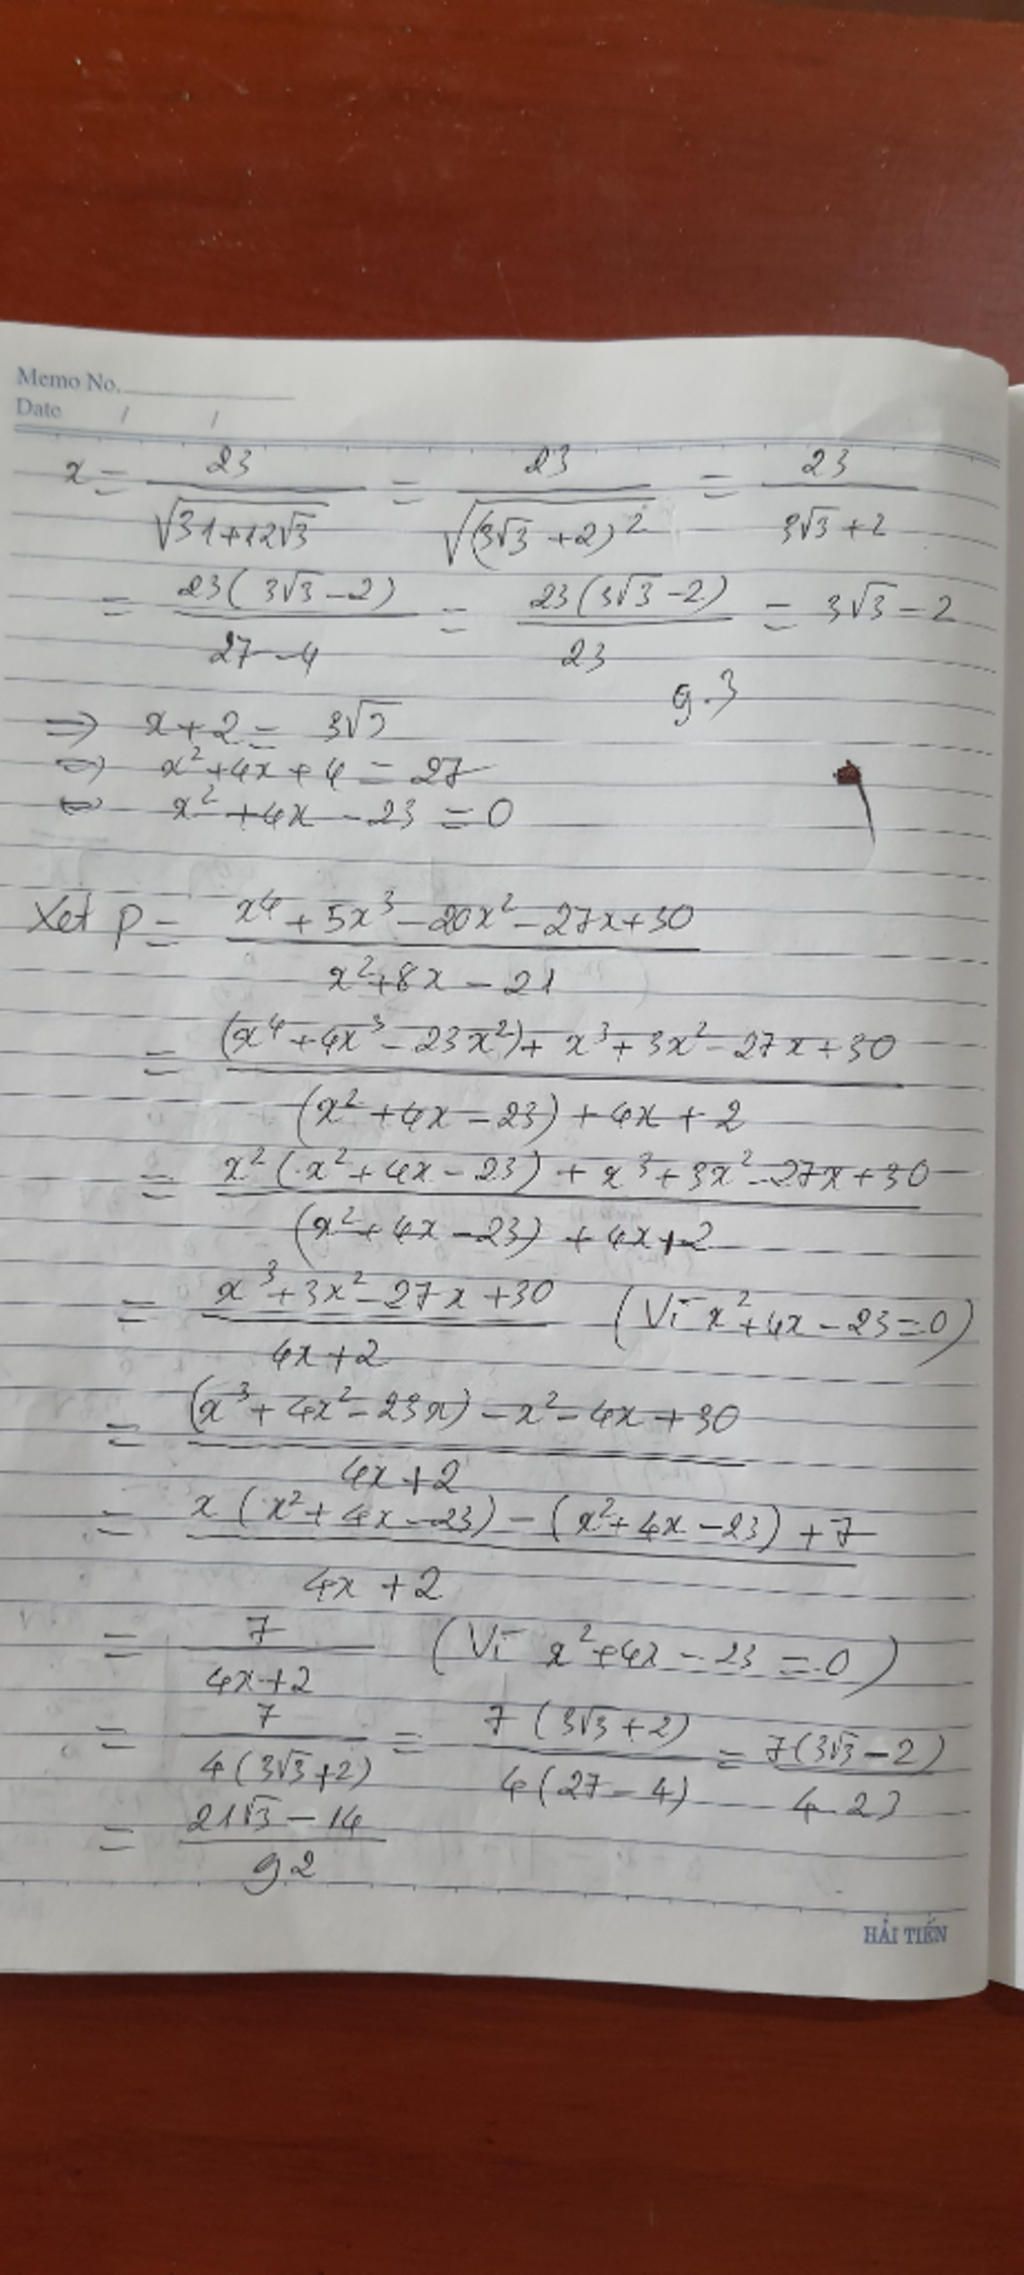 Memo No.
Date / /
x = 23/√(31+12√3) = 23/√((3√3+2)²) = 23/(3√3+2)
= 23(3√3-2)/(27-4) = 23(3√3-2)/23 = 3√3-2
9.3
⇒ x+2 = 3√3
⇔ x²+4x+4 = 27
⇔ x²+4x-23 = 0
Xét P = (x⁴+5x³-20x²-27x+30)/(x²+8x-21)
= ((x⁴+4x³-23x²)+x³+3x²-27x+30)/((x²+4x-23)+4x+2)
= (x²(x²+4x-23)+x³+3x²-27x+30)/((x²+4x-23)+4x+2)
= (x³+3x²-27x+30)/(4x+2) (Vì x²+4x-23=0)
= ((x³+4x²-23x)-x²-4x+30)/(4x+2)
= (x(x²+4x-23)-(x²+4x-23)+7)/(4x+2)
= 7/(4x+2) (Vì x²+4x-23=0)
= 7/(4(3√3+2)) = 7(3√3+2)/(4(27-4)) = 7(3√3-2)/(4.23)
= (21√3-14)/92
HẢI TIẾN